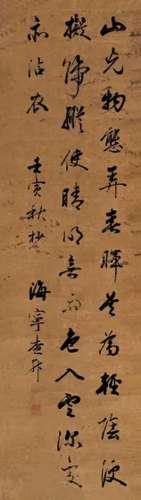 山光物態弄春暉莫為輕陰便
擬歸縱使晴明無雨色入雲深處
亦沾衣
壬寅秋杪 海寧查昇